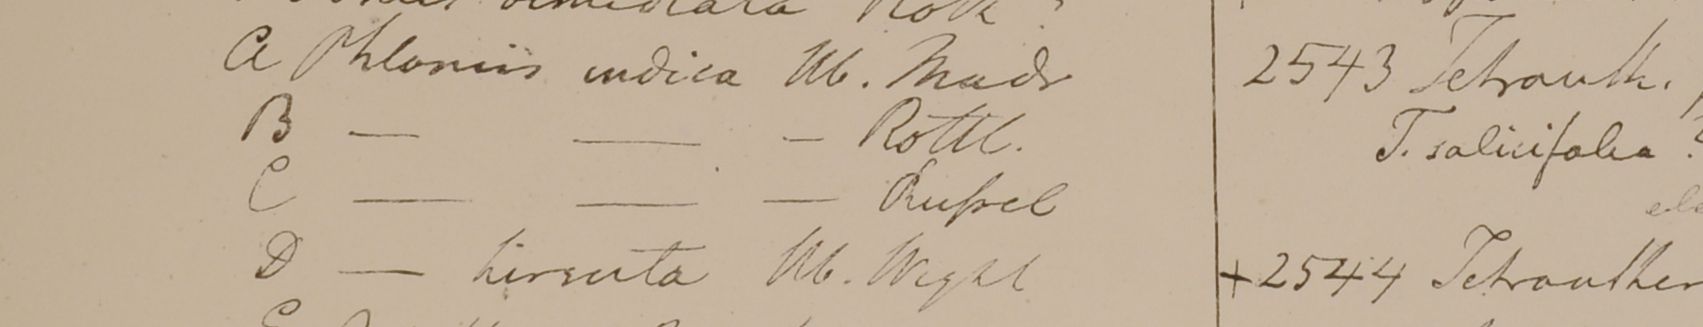 A Phlomis indica Hb. Madr
B — — — Rottl.
C — — — Rußel
D — hirsuta Hb. Wight
2543 Tetranth.
T. salicifolia ?
+2544 Tetranther